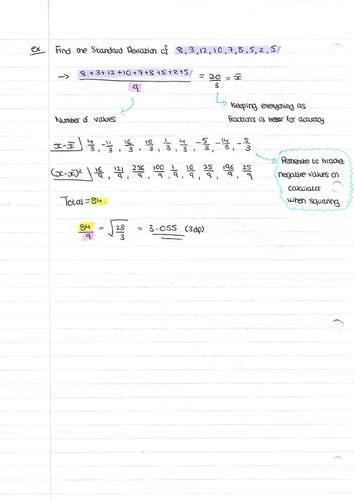 ex Find the Standard Deviation of 8, 3, 12, 10, 7, 8, 5, 2, 5
→ 8+3+12+10+7+8+5+2+5 / 9 = 20/3 = x̄
Number of values
Keeping everything as
fractions is better for accuracy
x-x̄ | 4/3, -11/3, 16/3, 10/3, 1/3, 4/3, -5/3, -14/3, -5/3
(x-x̄)² | 16/9, 121/9, 256/9, 100/9, 1/9, 16/9, 25/9, 196/9, 25/9
Remember to bracket
negative values on
calculator
when squaring
Total = 84
84/9 = √28/3 = 3.055 (3dp)